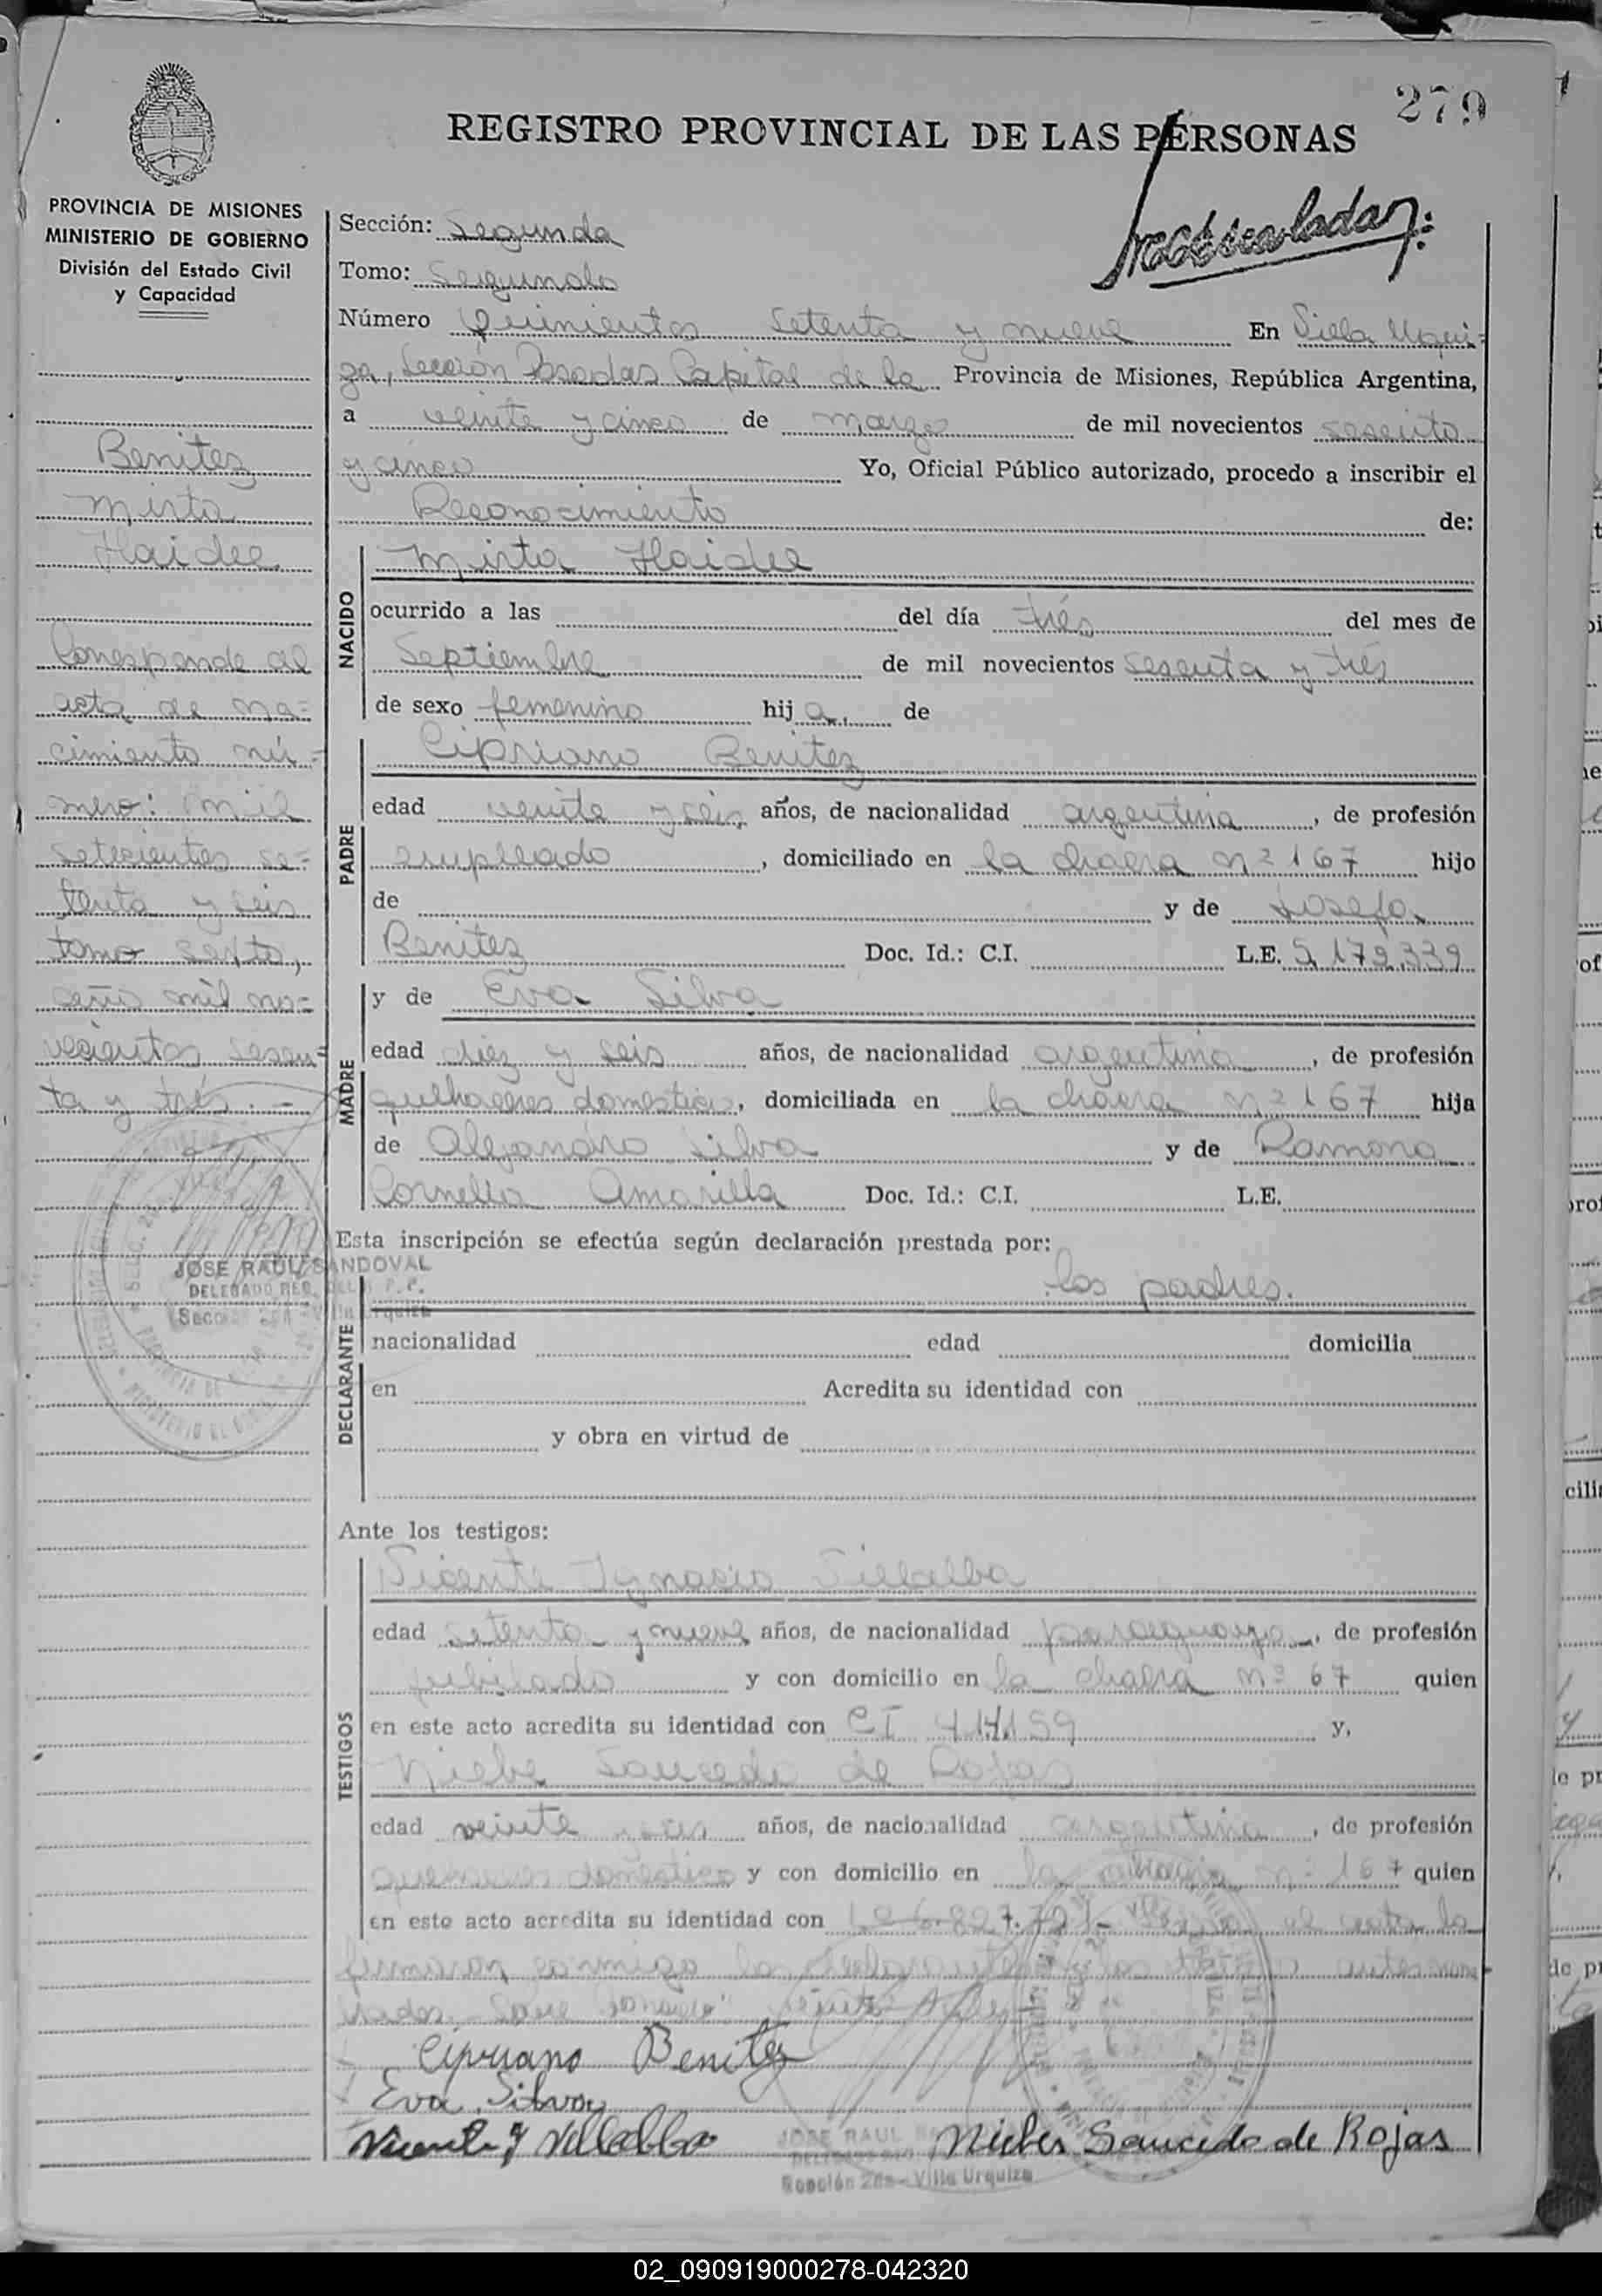 279
REGISTRO PROVINCIAL DE LAS PERSONAS
PROVINCIA DE MISIONES
MINISTERIO DE GOBIERNO
División del Estado Civil
y Capacidad
Benitez
Mirta
Haidee
Corresponde al
acta de na=
cimiento nú=
mero: mil
setecientos se=
tenta y seis
tomo sexto,
año mil no=
vecientos sesen=
ta y trés. -
JOSE RAUL SANDOVAL
Sección: Segunda
Tomo: Segundo
Número Quinientos setenta y nueve En Villa Urqui-
za, Sección Posadas Capital de la Provincia de Misiones, República Argentina,
a veinte y cinco de marzo de mil novecientos sesenta
y cinco Yo, Oficial Público autorizado, procedo a inscribir el
Reconocimiento de:
NACIDO
Mirta Haidee
ocurrido a las del día trés del mes de
Septiembre de mil novecientos sesenta y trés
de sexo femenino hij a. de
PADRE
Cipriano Benitez
edad veinte y seis años, de nacionalidad argentina, de profesión
empleado, domiciliado en la chacra nº 167 hijo
de y de Josefa
Benitez Doc. Id.: C.I. L.E. 5.179.339
MADRE
y de Eva Silva
edad diez y seis años, de nacionalidad argentina, de profesión
quehaceres domesticos, domiciliada en la chacra nº 167 hija
de Alejandro Silva y de Ramona
Cornelia Amarilla Doc. Id.: C.I. L.E.
Esta inscripción se efectúa según declaración prestada por:
DECLARANTE
los padres.
nacionalidad edad domicilia
en Acredita su identidad con
y obra en virtud de
Ante los testigos:
TESTIGOS
Vicente Ignacio Villalba
edad setenta y nueve años, de nacionalidad paraguaya, de profesión
jubilado y con domicilio en la chacra nº 67 quien
en este acto acredita su identidad con CI y,
Niebe Saucedo de Rojas
edad veinte y seis años, de nacionalidad argentina, de profesión
quehaceres domestico y con domicilio en la chacra nº 167 quien
en este acto acredita su identidad con el acta la
firmaron conmigo los declarantes y los testigo antes nom
brados
Cipriano Benitez
Eva Silva
Vicente Y Villalba
Nieber Saucedo de Rojas
JOSE RAUL
Sección 2da - Villa Urquiza
02_090919000278-042320